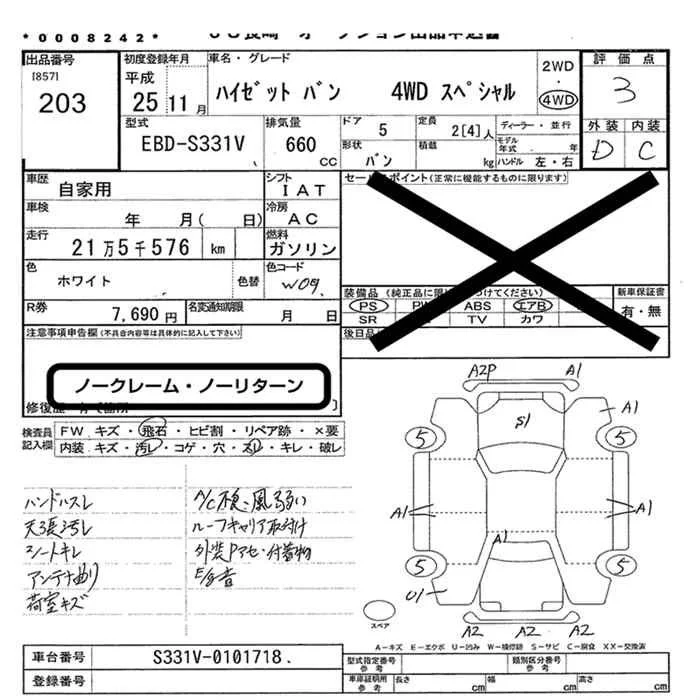 *0008242*
出品番号
[857]
203
初度登録年月
平成
25 11 月
車名・グレード
ハイゼット バン 4WD スペシャル
2WD
・
4WD
評価点
3
外装 内装
D C
型式
EBD-S331V
排気量
660
cc
ドア 5
形状 バン
定員 2[4]人
積載 kg
ディーラー・並行
モデル年式 年
ハンドル 左・右
車歴
自家用
シフト
IAT
車検
年 月( 日)
冷房
AC
走行
21万5千576 km
燃料
ガソリン
色
ホワイト
色替
色コード
W09
R券
7,690 円
名変通知期限
月 日
注意事項申告欄(不具合内容等は具体的に記入して下さい)
ノークレーム・ノーリターン
セールスポイント(正常に機能するものに限ります)
PS ABS エアB
SR TV カワ
新車保証書
有・無
検査員
記入欄
FW キズ・飛石・ヒビ割・リペア跡・×要
内装 キズ・汚レ・コゲ・穴・スレ・キレ・破レ
ハンドルスレ
天張汚レ
シートキレ
アンテナ曲り
荷室キズ
A/C不良、風弱い
ルーフキャリア取付け
外装Pアセ・付着物
E/G音
A2P A1
S1
A1
5 5
A1 A1
A1
5 5
01
A2 A2 A2
スペア
A-キズ E-エクボ U-凹み W-補修跡 S-サビ C-腐食 XX-交換済
車台番号
S331V-0101718.
登録番号
型式指定番号
参考
類別区分番号
参考
車庫証明用
参考
長さ cm 幅 cm 高さ cm